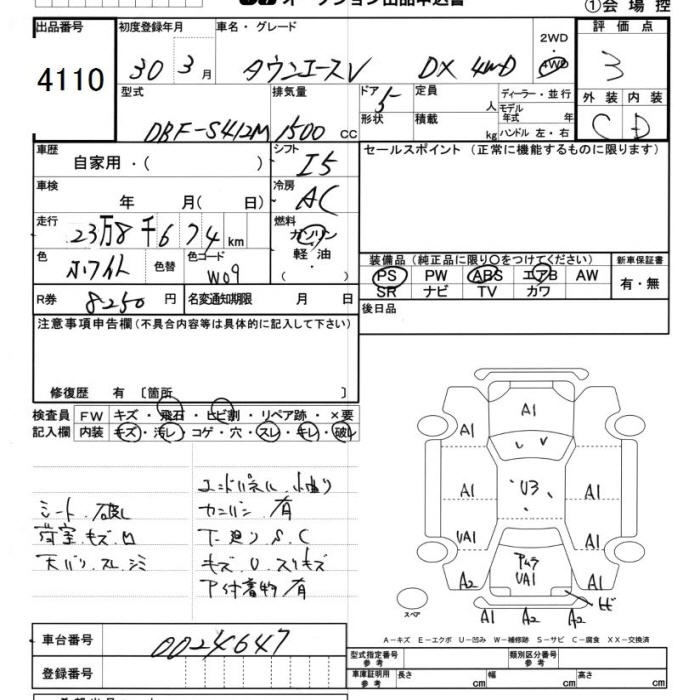 オークション出品申込書
①会場控
出品番号 初度登録年月 車名・グレード 2WD 評価点
4110 30年3月 タウンエースV DX 4WD 4WD 3
型式 排気量 ドア 定員 ディーラー・並行 外装 内装
DBF-S412M 1500 cc 5 人 モデル年式 年 C D
形状 積載 kg ハンドル 左・右
車歴 自家用・( ) シフト I5 セールスポイント (正常に機能するものに限ります)
車検 年 月( 日) 冷房 AC
走行 23万8千674km 燃料 ガソリン
色 ホワイト 色替 色コード W09 軽油・( )
装備品(純正品に限り○をつけてください) 新車保証書
PS PW ABS エアB AW 有・無
SR ナビ TV カワ
R券 8250円 名変通知期限 月 日
後日品
注意事項申告欄(不具合内容等は具体的に記入して下さい)
修復歴 有 〔箇所 〕
検査員 FW キズ・飛石・ヒビ割・リペア跡・×要
記入欄 内装 キズ・汚レ・コゲ・穴・スレ・キレ・破レ
エンドパネル 小曲り
シート 破レ カウンバン 有
荷室 キズ 凹 下廻り S.C
天バリ スレ シミ キズ U スリキズ
P付着物 有
A1
A1
A1 U3 A1
UA1 A1
A2 アムラ UA1 A1
ヒビ
スペア
A1 A2 A2
A-キズ E-エクボ U-凹み W-補修跡 S-サビ C-腐食 XX-交換済
車台番号 0024647
型式指定番号 参考 類別区分番号 参考
登録番号
車庫証明用 参考 長さ cm 幅 cm 高さ cm